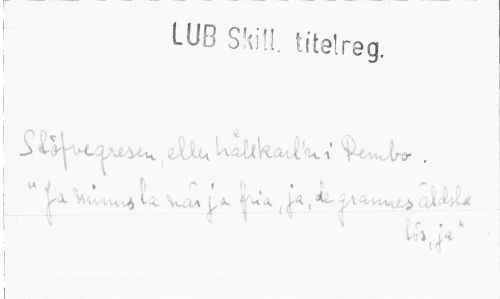 LUB Skill. titelreg.
Stöfvegresen, eller hållkarl'n i Rembo.
"Ja minns la när ja fria, ja, de grannes äldsta
tös, ja"